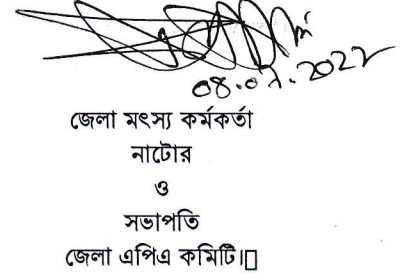 08.07.2022
জেলা মৎস্য কর্মকর্তা
নাটোর
ও
সভাপতি
জেলা এপিএ কমিটি।